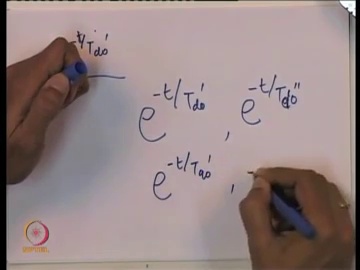 -t/Tdo'
e^-t/Tdo' , e^-t/Tdo''
e^-t/Tqo' ,
NPTEL